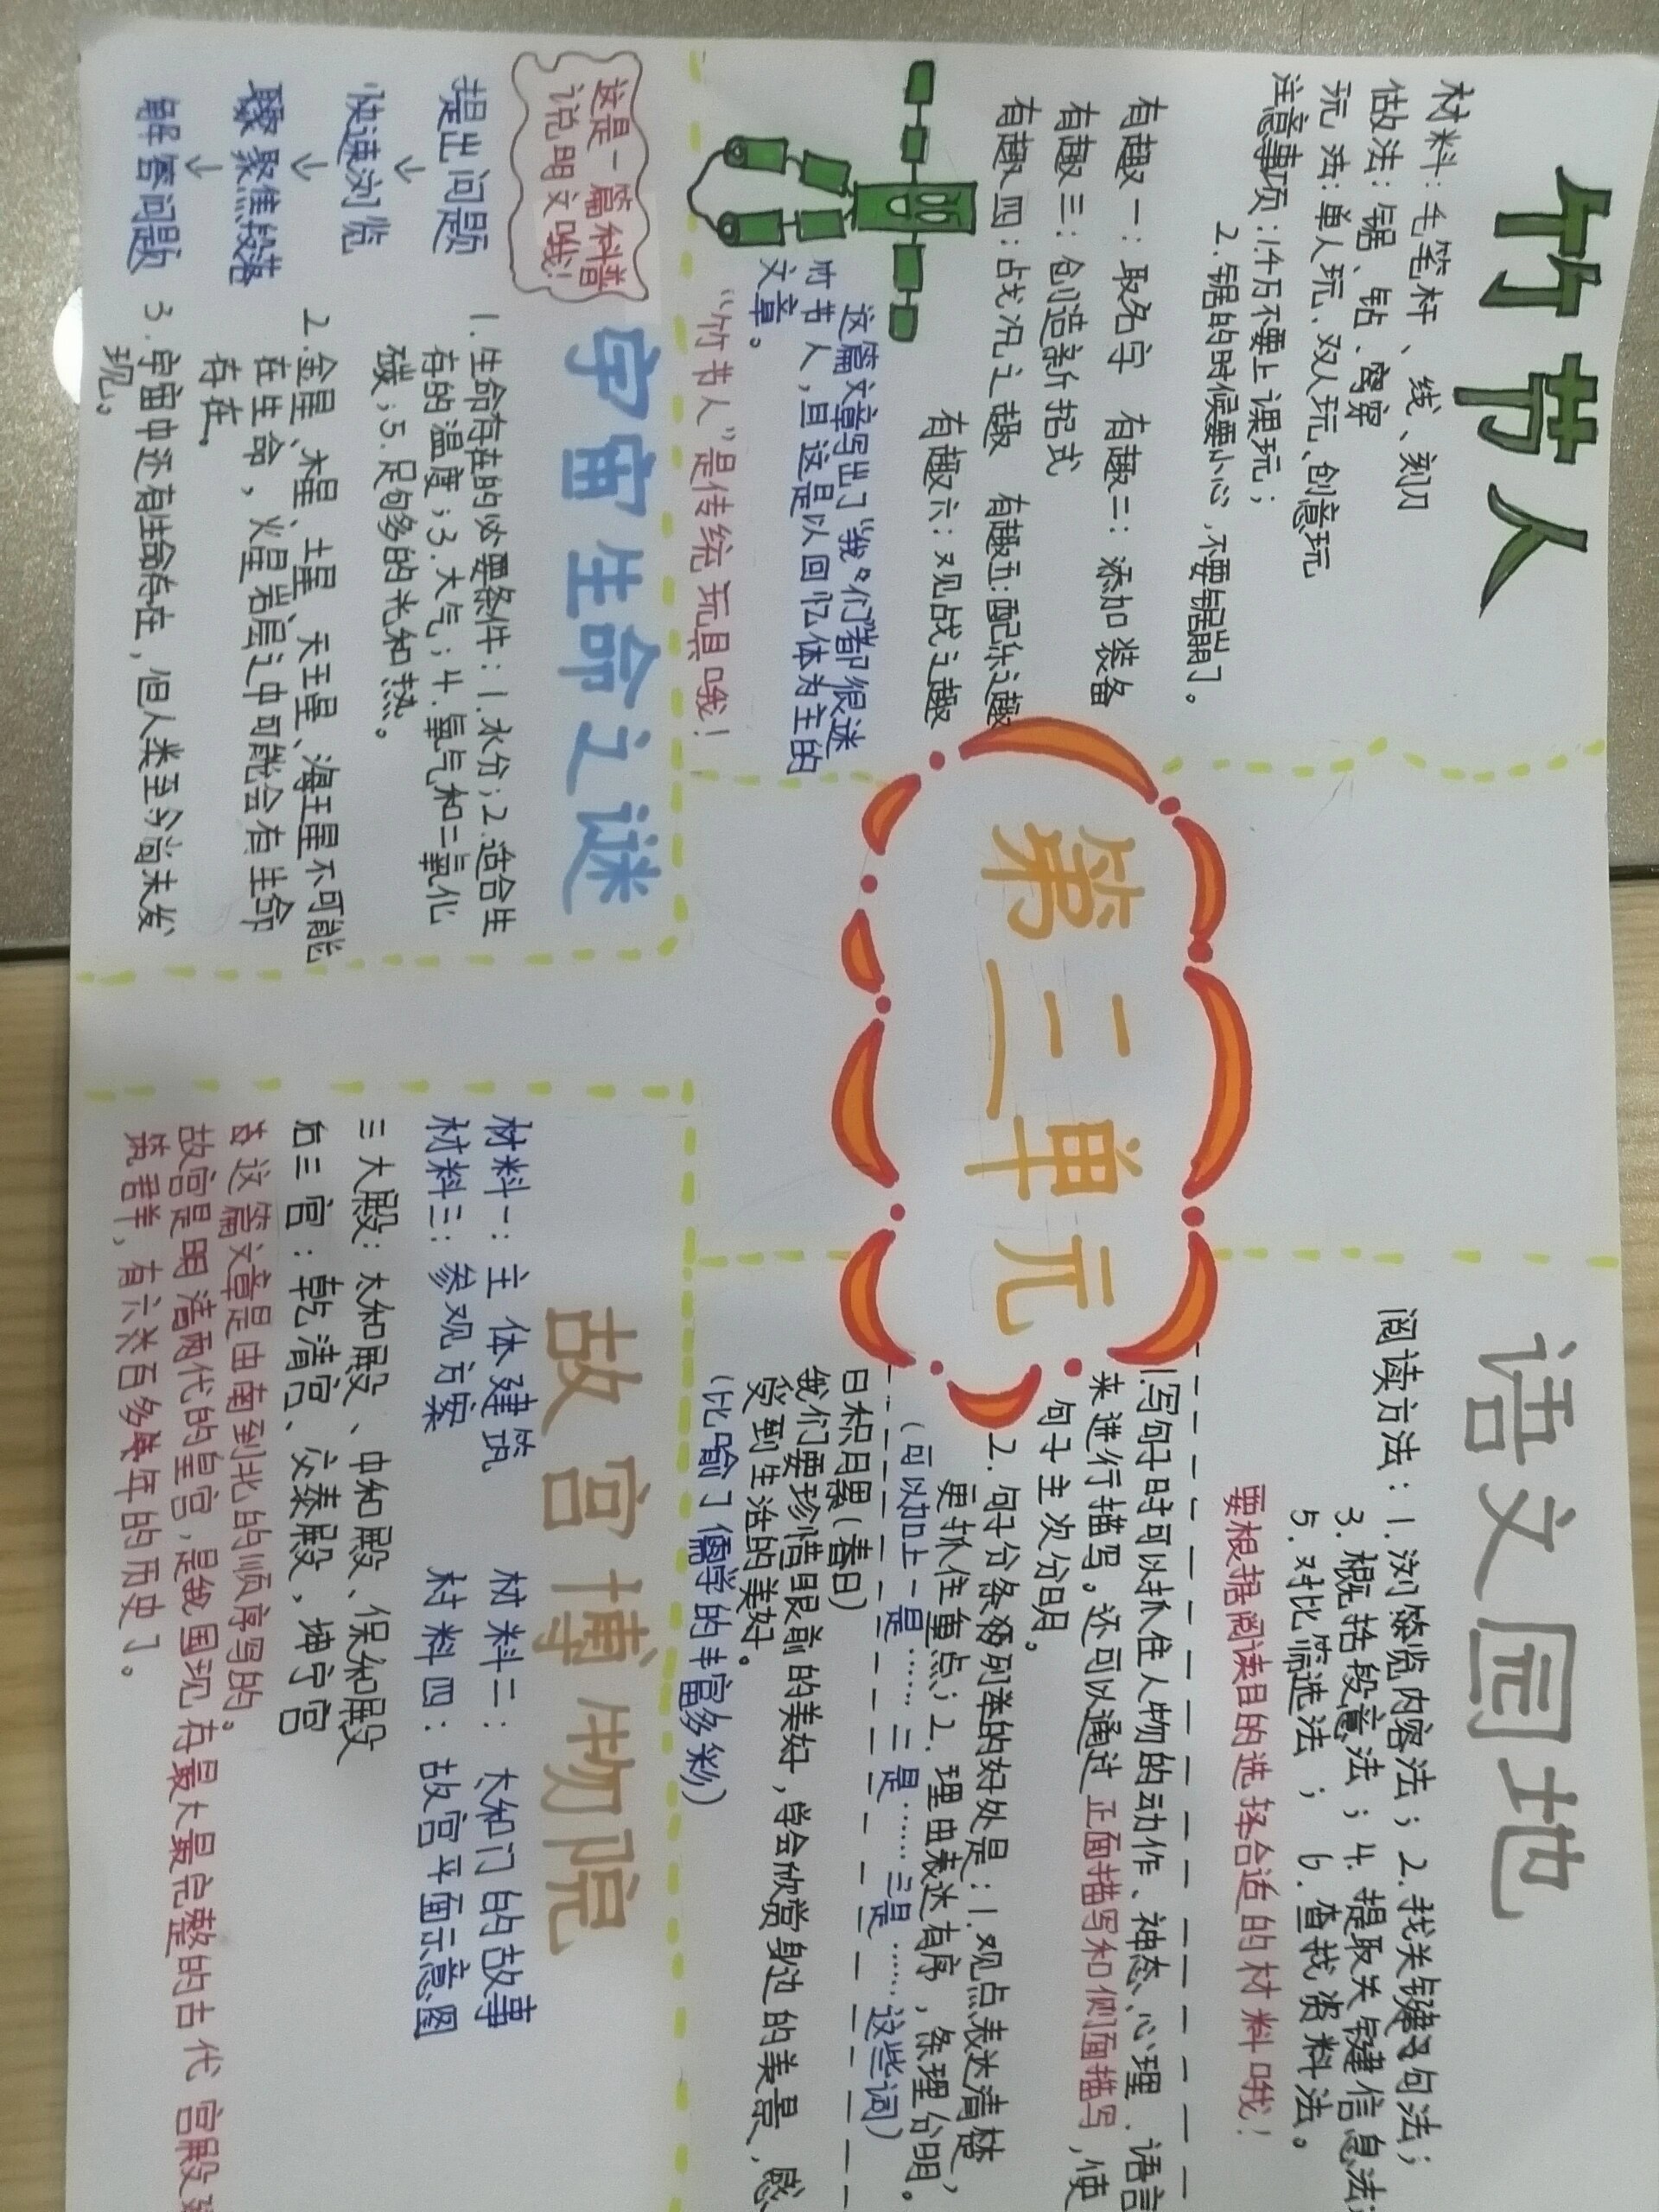 竹节人
材料:毛笔杆、线、刻刀
估故法:锯、钻、窝穿
玩法:单人玩、双人玩、创意玩
注意事项:1.千万不要上课玩;
2.锯的时候要小心,不要锯崩了。
有趣一:取名字 有趣二:添加装备
有趣三:创造新招式
有趣四:占战况之趣 有趣五:配乐之趣
有趣六:观战之趣
这篇文章写出了“我”们都很迷
竹节人,但这是以回忆体为主的
文章。
“竹节人”是传统玩具哦!
第二单元
语文园地
阅读方法:1.浏览内容法;2.找关键句法;
3.概括段意法;4.提取关键信息法
5.对比筛选法;6.查找资料法。
要根据阅读目的选择合适的材料哦!
1.写句子时可以抓住人物的动作、神态、心理、语言
来进行描写。还可以通过正面描写和侧面描写,使
句子主次分明。
2.句子分条列举的好处是:1.观点表达清楚,
要抓住重点;2.理由表达有序,条理分明。
(可以加上一是……二是……三是……这些词)
日积月累(春日)
我们要珍惜眼前的美好,学会欣赏身边的美景,感
受到生活的美好。
(比喻了儒学的丰富多彩)
这是一篇科普
说明文哦!
宇宙生命之谜
提出问题
↓
快速浏览
↓
聚焦段落
↓
解答问题
1.生命存在的必要条件:1.水分;2.适合生
存的温度;3.大气;4.氧气和二氧化
碳;5.足够多的光和热。
2.金星、木星、土星、天王星、海王星不可能
在生命,火星岩层之中可能会有生命
存在。
3.宇宙中还有生命存在,但人类至今尚未发
现。
故宫博物院
材料一:主体建筑 材料二:太和门的故事
材料三:参观方案 材料四:故宫平面示意图
三大殿:太和殿、中和殿、保和殿
后三宫:乾清宫、交泰殿,坤宁宫
这篇文章是由南到北的顺序写的。
故宫是明清两代的皇宫,是我国现存最大最完整的古代宫殿建
筑群,有六百多年的历史了。